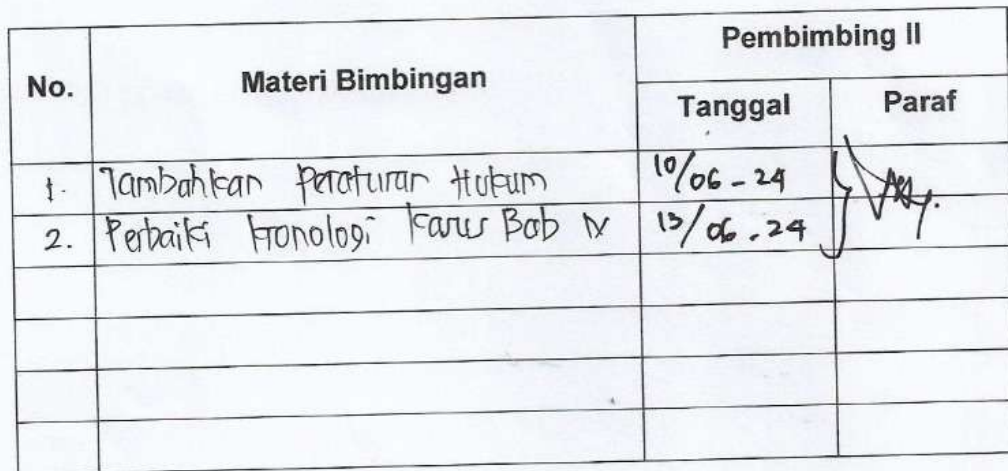 No. Materi Bimbingan Pembimbing II
Tanggal Paraf
1. Tambahkan Peraturan Hukum 10/06 - 24
2. Perbaiki kronologi Kasus Bab IV 13/06 - 24